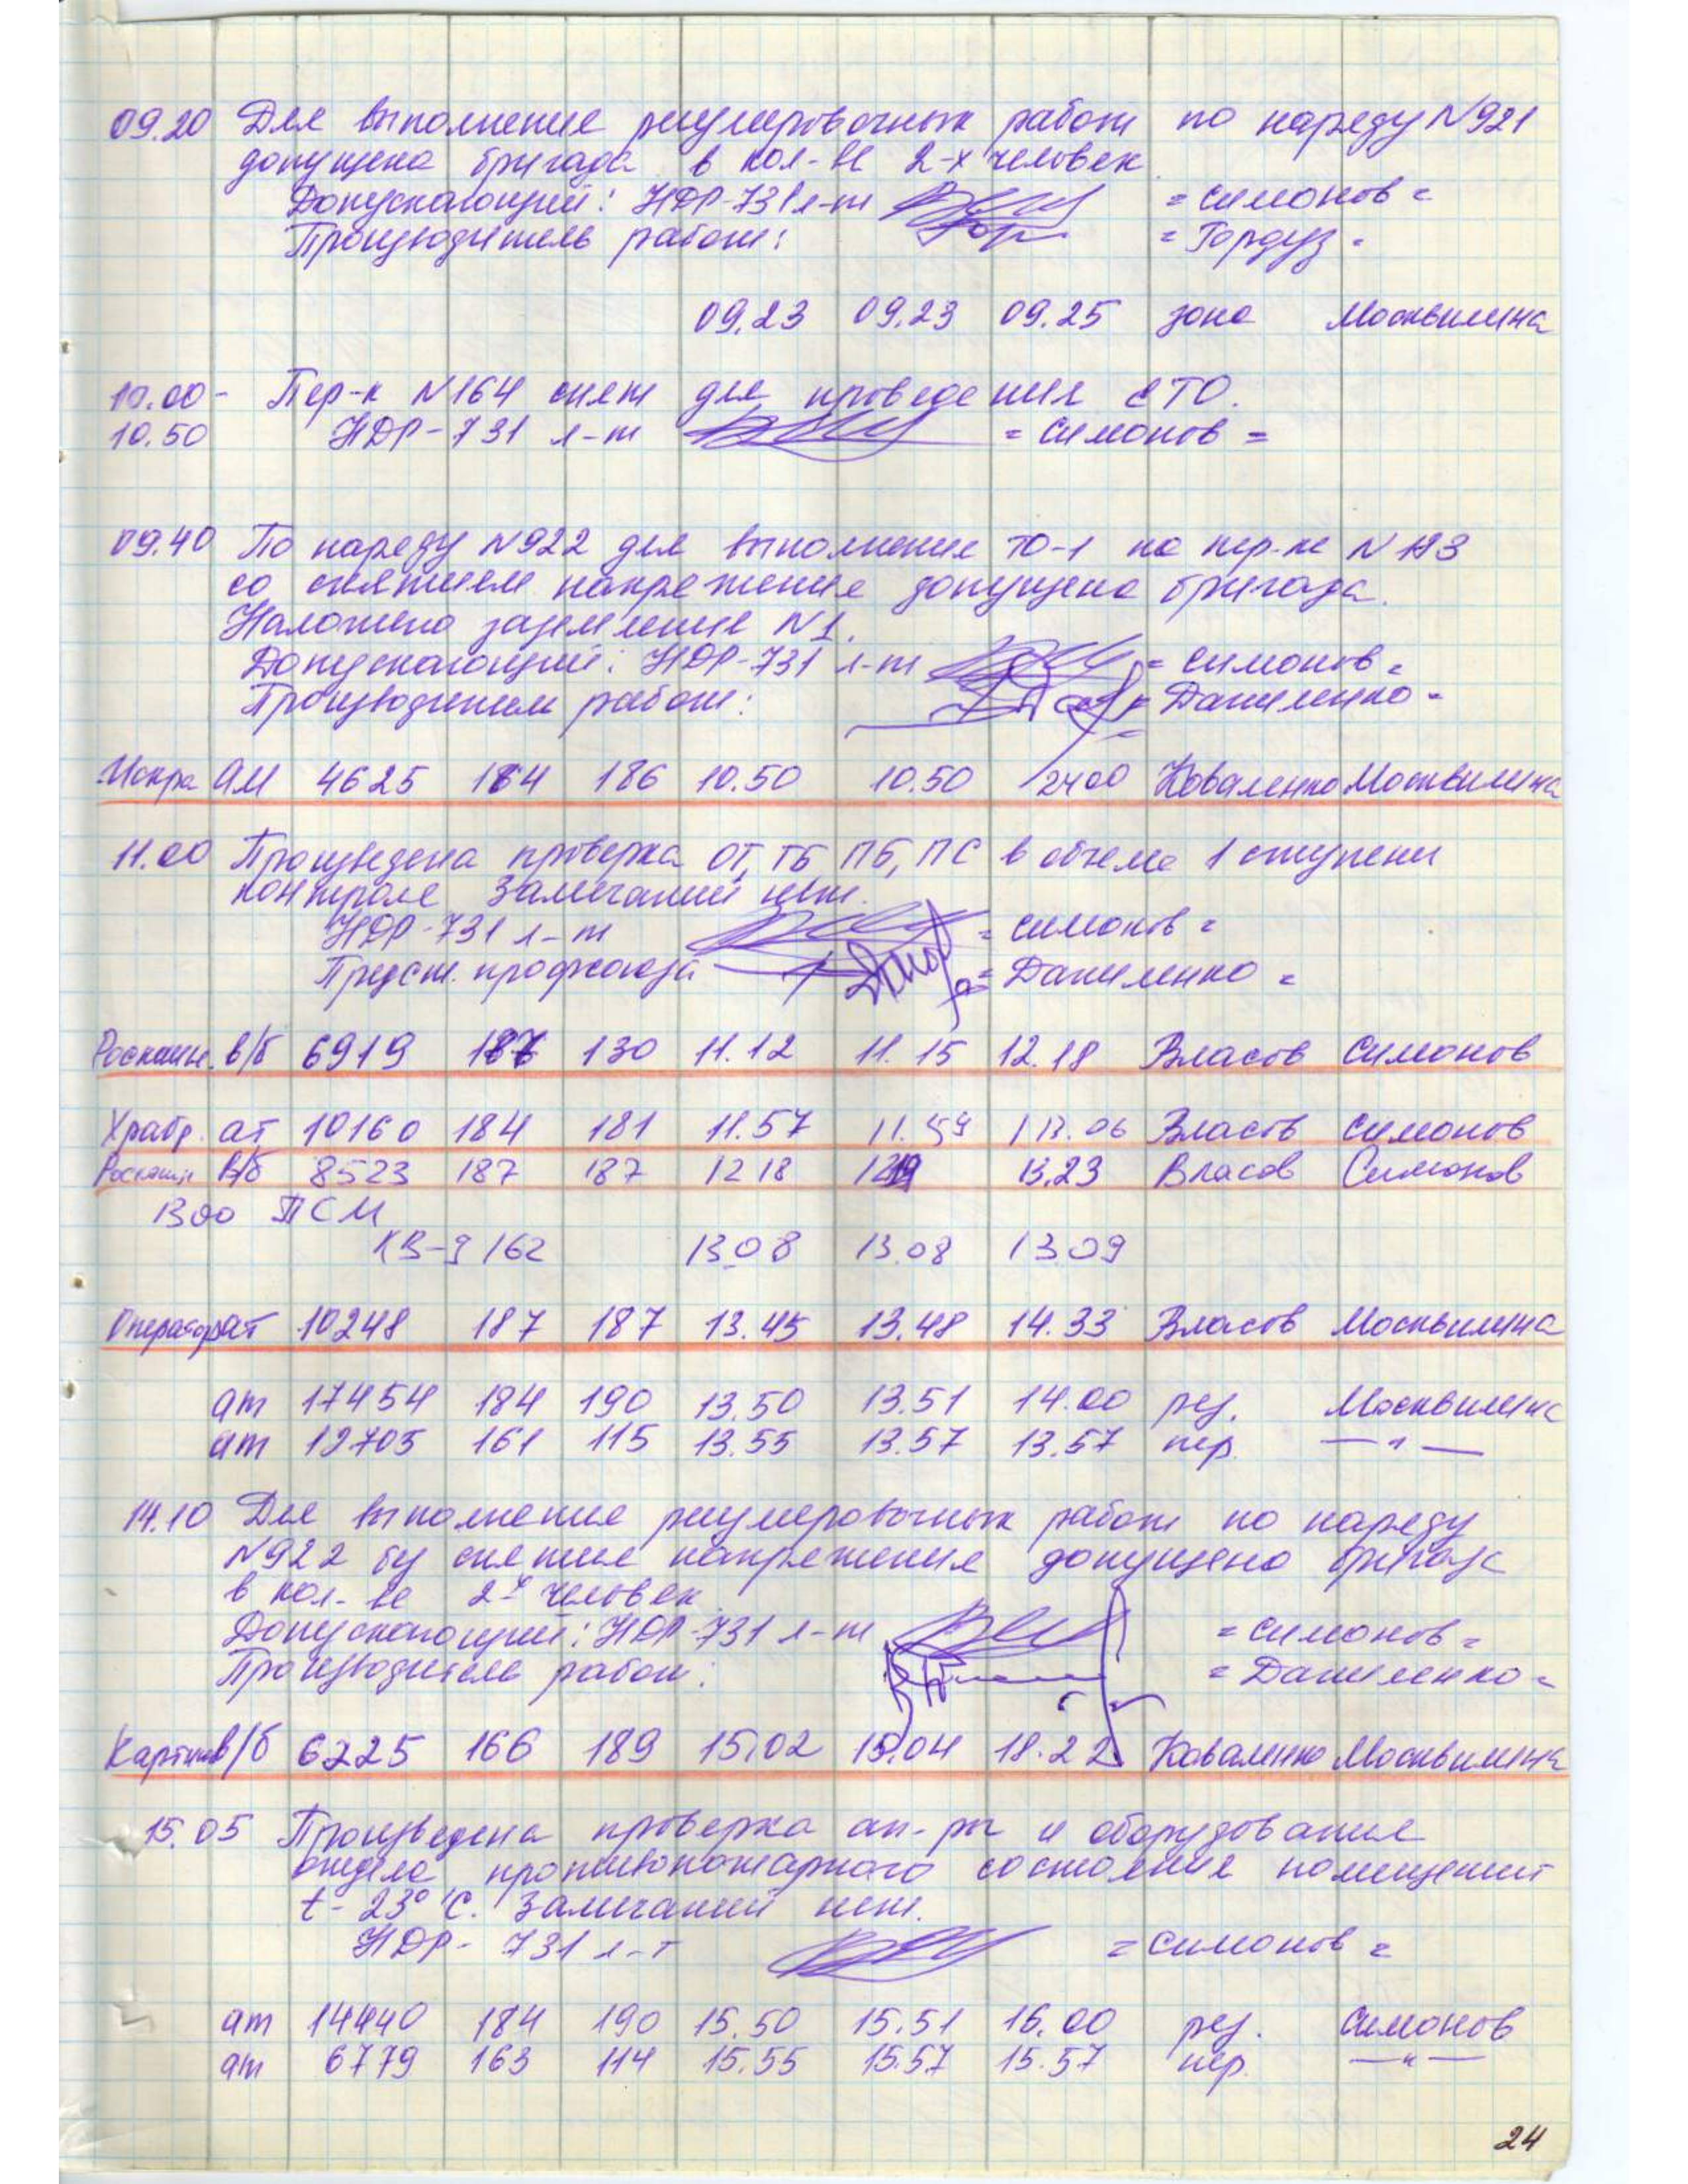 09.20 Для выполнение регулировочных работ по наряду N921
допущена бригада в кол-ве 2-х человек
Допускающий: НДР-731 л-т = Симонов =
Производитель работ: = Гордуз =
09.23 09.23 09.25 зона Москвилина
10.00- Пер-к N164 снят для проведения ЕТО.
10.50 НДР-731 л-т = Симонов =
09.40 По наряду N922 для выполнение ТО-1 на пер-ке N183
со снятием напряжение допущена бригада.
Наложено заземление N1.
Допускающий: НДР-731 л-т = Симонов =
Производитель работ: = Даниленко =
Искра АМ 4625 184 186 10.50 10.50 2400 Коваленко Москвилина
11.00 Произведена проверка ОТ, ТБ ПБ, ПС в объеме 1 ступени
контроле Замечаний нет.
НДР-731 л-т = Симонов =
Предст. профсоюза = Даниленко =
в/б 6919 187 130 11.12 11.15 12.18 Власов Симонов
Храбр. ат 10160 184 181 11.57 11.59 13.06 Власов Симонов
В/б 8523 187 187 12 18 12 19 13.23 Власов Симонов
1300 ПСМ
КВ-9 162 13.08 13.08 13 09
Оператор ат 10248 187 187 13.45 13.48 14.33 Власов Москвилина
ат 17454 184 190 13.50 13.51 14.00 рез. Москвилина
ат 12705 161 115 13.55 13.57 13.57 пер. — " —
14.10 Для выполнение регулировочных работ по наряду
N922 без снятие напряжения допущено бригада
в кол-ве 2х человек
Допускающий: НДР-731 л-т = Симонов =
Производитель работ: = Даниленко =
в/б 6225 166 189 15.02 15.04 18.22 Коваленко Москвилина
15.05 Произведена проверка ап-ры и оборудование
отдела противопожарного состояние помещений
t- 23° C. Замечаний нет.
НДР- 731 л-т = Симонов =
ат 14440 184 190 15.50 15.51 16.00 рез. Симонов
ат 6779 163 114 15.55 15.57 15.57 пер. — " —
24